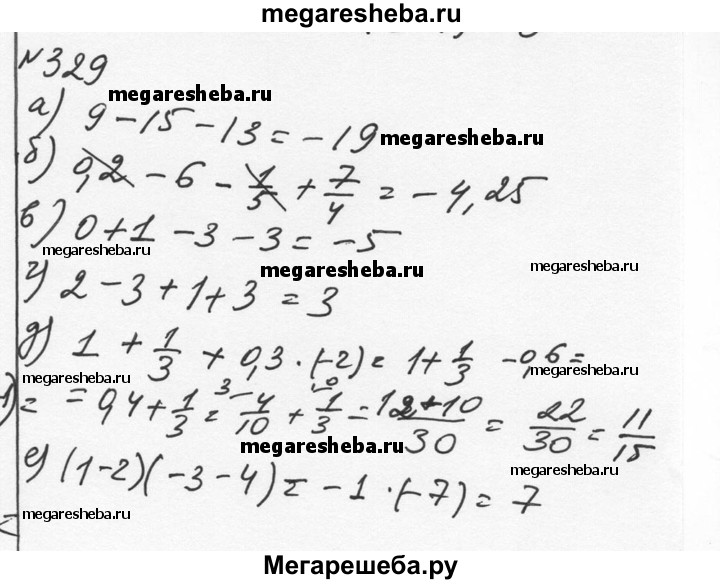 megaresheba.ru
№329
megaresheba.ru
а) 9 - 15 - 13 = -19
megaresheba.ru
б) 0,2 - 6 - 1/5 + 7/4 = -4,25
в) 0 + 1 - 3 - 3 = -5
megaresheba.ru
megaresheba.ru
megaresheba.ru
г) 2 - 3 + 1 + 3 = 3
д) 1 + 1/3 + 0,3 · (-2) = 1 + 1/3 - 0,6 =
megaresheba.ru
megaresheba.ru
= = 0,4 + 1/3 = 4/10 + 1/3 = 12+10/30 = 22/30 = 11/15
megaresheba.ru
megaresheba.ru
е) (1-2)(-3-4) = -1 · (-7) = 7
megaresheba.ru
megaresheba.ru
Мегарешеба.ру